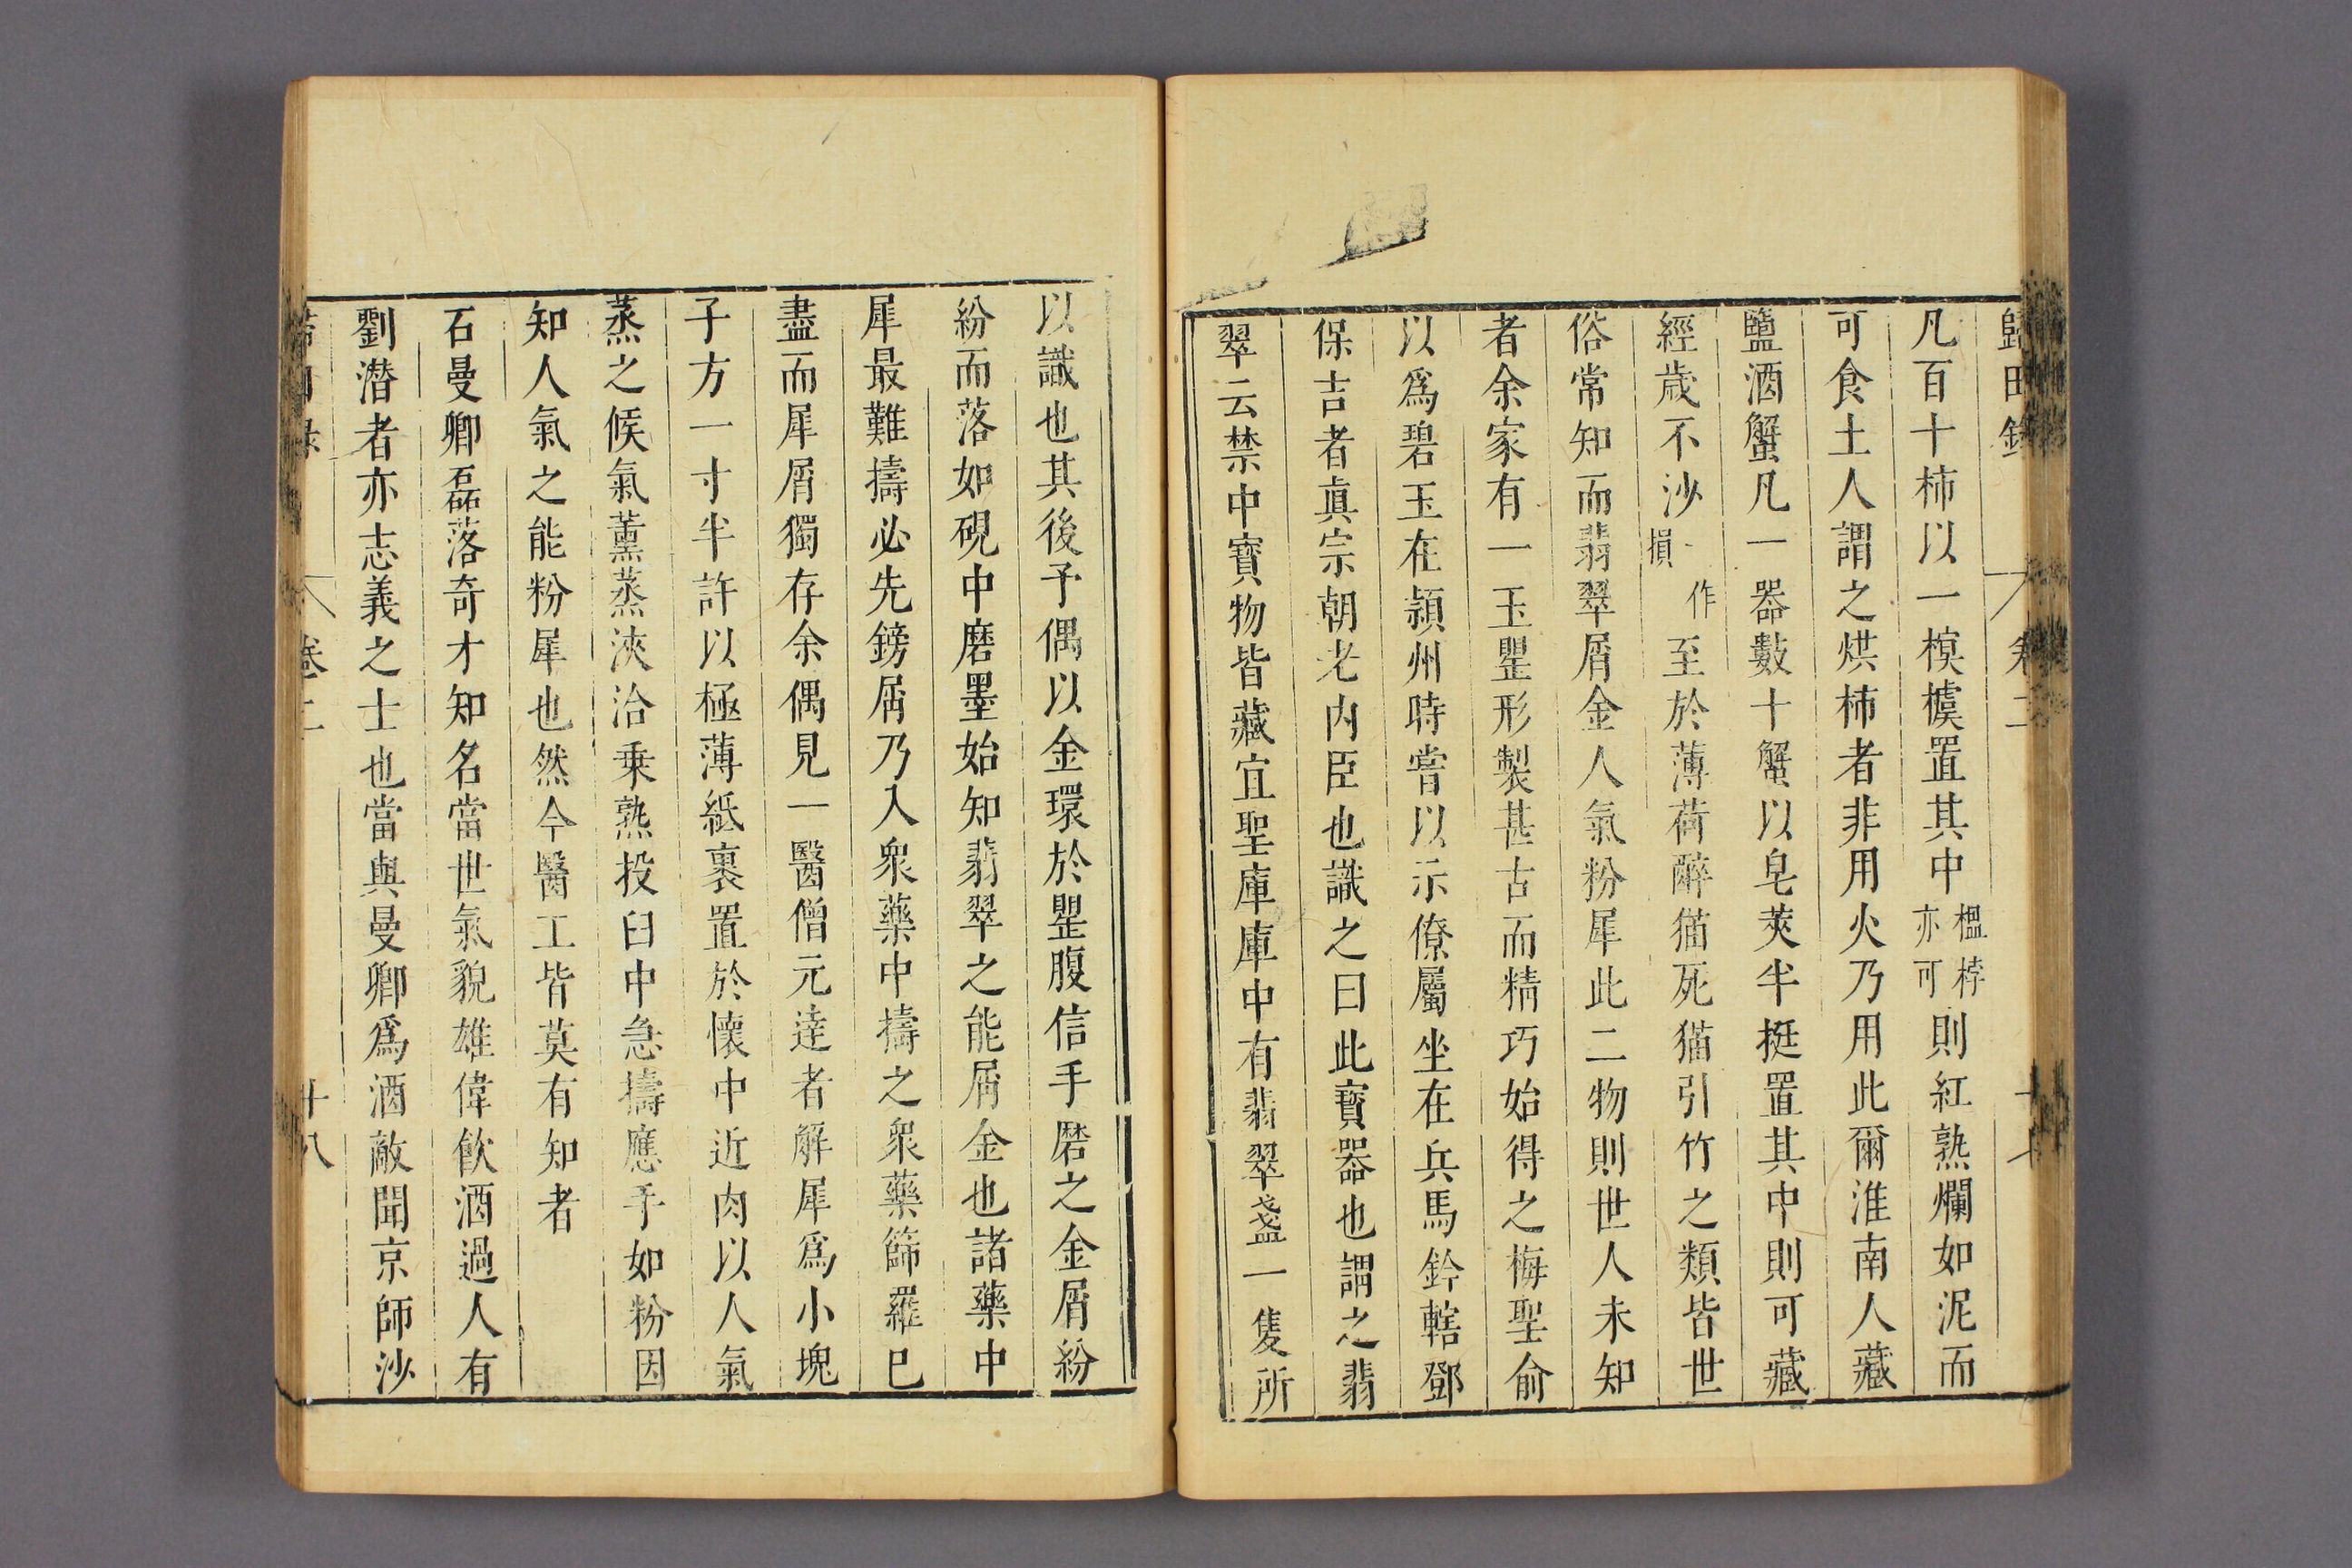 歸田錄 卷二
凡百十柿以一榠樝置其中榲桲亦可則紅熟爛如泥而
可食土人謂之烘柿者非用火乃用此爾淮南人藏
鹽酒蟹凡一器數十蟹以皂莢半挺置其中則可藏
經歲不沙一作損至於薄荷醉猫死猫引竹之類皆世
俗常知而翡翠屑金人氣粉犀此二物則世人未知
者余家有一玉罌形製甚古而精巧始得之梅聖俞
以爲碧玉在潁州時嘗以示僚屬坐在兵馬鈐轄鄧
保吉者眞宗朝老内臣也識之曰此寶器也謂之翡
翠云禁中寶物皆藏宜聖庫庫中有翡翠盞一隻所
以識也其後予偶以金環於罌腹信手磨之金屑紛
紛而落如硯中磨墨始知翡翠之能屑金也諸藥中
犀最難擣必先鎊屑乃入衆藥中擣之衆藥篩羅已
盡而犀屑獨存余偶見一醫僧元達者解犀爲小塊
子方一寸半許以極薄紙裹置於懷中近肉以人氣
蒸之候氣薰蒸浹洽乗熱投臼中急擣應手如粉因
知人氣之能粉犀也然今醫工皆莫有知者
石曼卿磊落奇才知名當世氣貌雄偉飲酒過人有
劉潛者亦志義之士也當與曼卿爲酒敵聞京師沙
卷二 十八